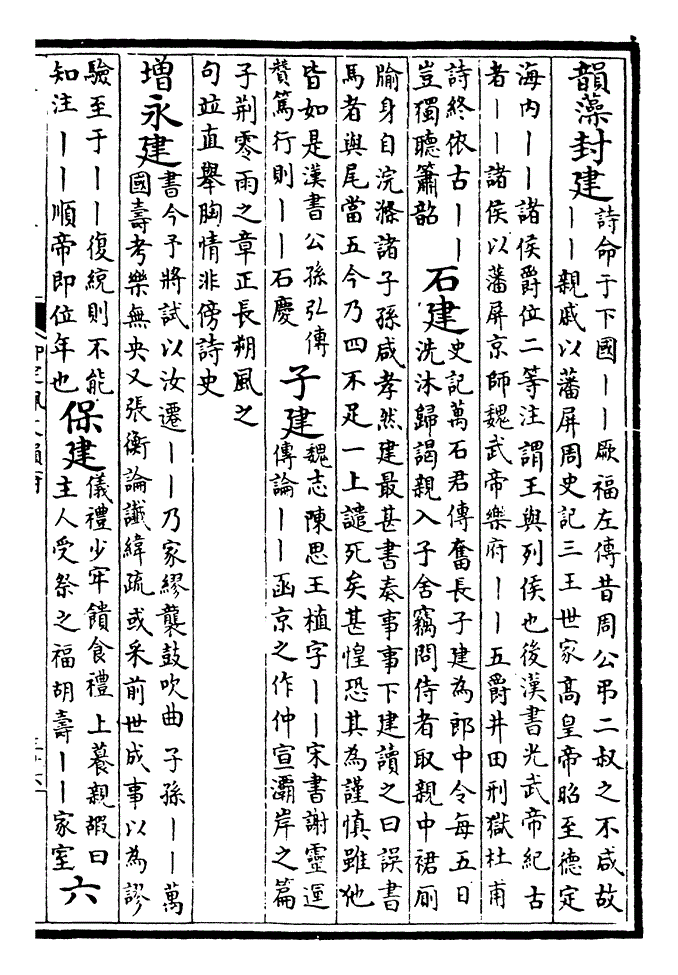 韻藻封建
詩命于下國丨丨厥福左傳昔周公弔二叔之不咸故
丨丨親戚以藩屏周史記三王世家高皇帝昭至德定
海内丨丨諸侯爵位二等注謂王與列侯也後漢書光武帝紀古
者丨丨諸侯以藩屏京師魏武帝樂府丨丨五爵井田刑獄杜甫
詩終依古丨丨
豈獨聽簫韶
石建
史記萬石君傳奮長子建為郎中令每五日
洗沐歸謁親入子舍竊問侍者取親中裙厠
腧身自浣滌諸子孫咸孝然建最甚書奏事事下建讀之曰誤書
馬者與尾當五今乃四不足一上譴死矣甚惶恐其為謹慎雖他
皆如是漢書公孫弘傳
贊篤行則丨丨石慶
子建
魏志陳思王植字丨丨宋書謝靈運
傳論丨丨函京之作仲宣灞岸之篇
子荆零雨之章正長朔風之
句竝直舉胸情非傍詩史
增永建
書今予將試以汝遷丨丨乃家繆襲鼓吹曲子孫丨丨萬
國壽考樂無央又張衡論讖緯疏或采前世成事以為謬
驗至于丨丨復統則不能
知注丨丨順帝即位年也
保建
儀禮少牢饋食禮上親嘏曰
主人受祭之福胡壽丨丨家室
六